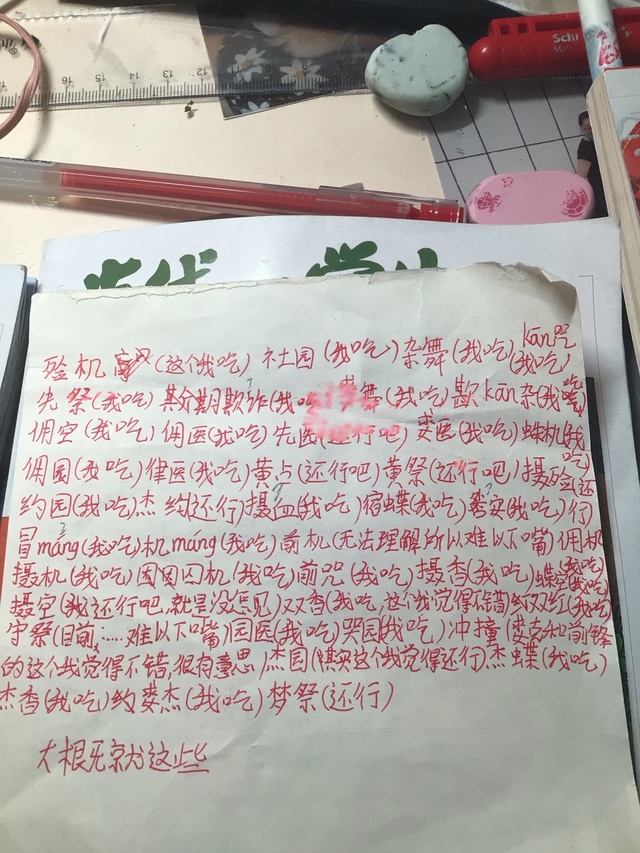 16 15 14 13 12
Schi
Ma
殓机窟(这个我吃) 社园(我吃)杂舞(我吃)kān咒(我吃)
先祭(我吃) 期欺诈(我吃)舞(我吃)歎kān杂(我吃)
佣空(我吃) 佣医(我吃)先医(还行吧)麦医(我吃)蛛机(我吃)
佣园(我吃)律医(我吃)黄占(还行吧)黄祭(还行吧)摄殓(还行)
约园(我吃)杰约(还行)摄血(我吃)宿蝶(我吃)(我吃)
冒máng(我吃)机máng(我吃)前机(无法理解所以难以下嘴)佣机(我吃)
摄机(我吃)囚机(我吃)前咒(我吃)摄香(我吃)蝶(我吃)
摄空(我还行吧,就是没意见)双香(我吃,这个我觉得不错)约双红(我吃)
守祭(目前……难以下嘴)园医(我吃)哭园(我吃)冲撞(麦克和前锋
的这个我觉得不错,很有意思)杰园(其实这个我觉得还行)杰蝶(我吃)
杰香(我吃)约麦杰(我吃)梦祭(还行)
大根牙就这些